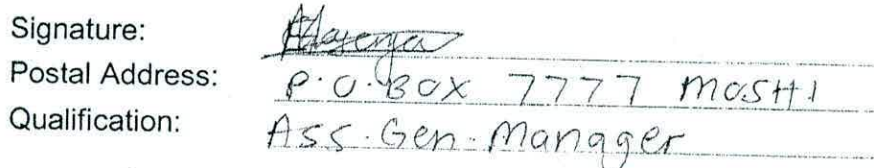 Signature:
Postal Address: P.O.BOX 7777 MOSHI
Qualification: Ass.Gen.Manager